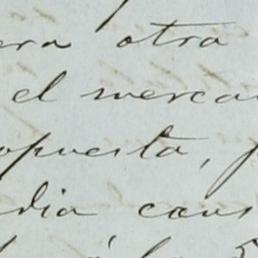 era otra
el merca
opuesta,
dia caus